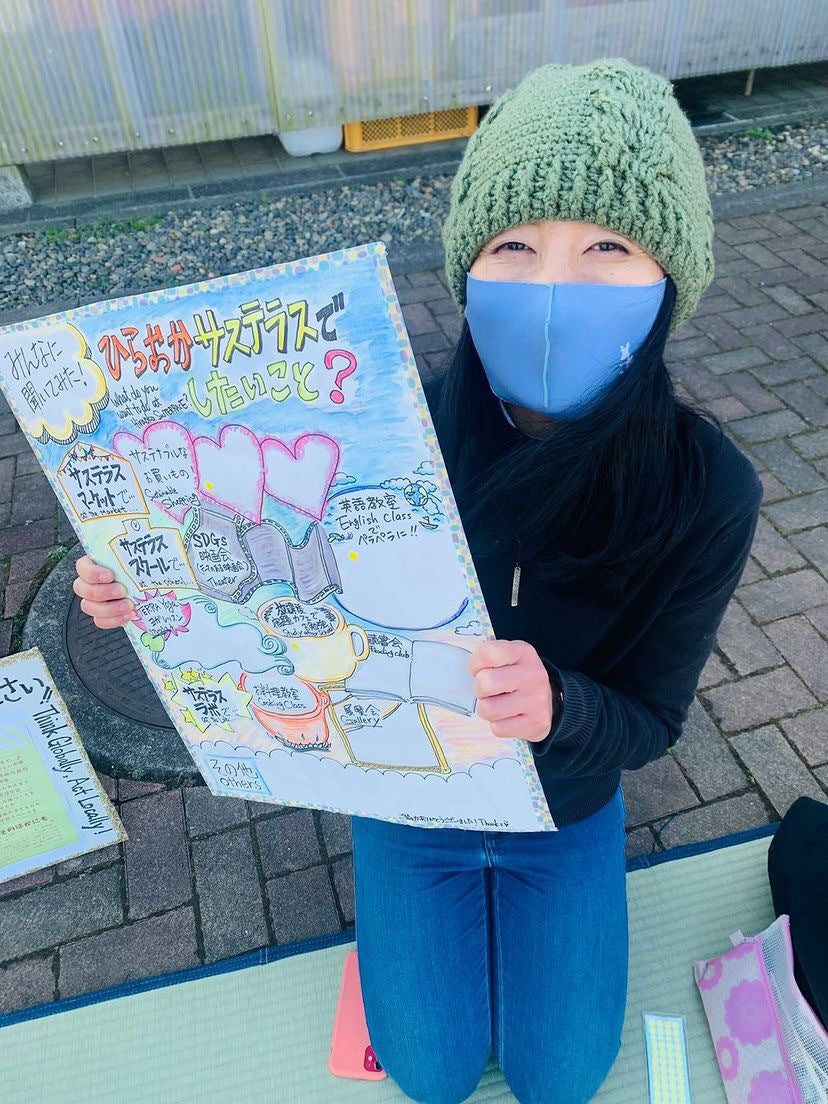 みんなに
聞いてみた!
ひらおかサステラスで
したいこと?
What do you
want to do at
サステラス
マーケットで…
at the market...
サステナブルな
お買いもの
Sustainable
Shopping
サステラス
スクールで…
at the school...
SDGs
映画会
Theater
英語教室
English Class
で
ペラペラに!!
Study after school
読書会
Reading club
サステラス
ラボで…
at the lab...
お料理教室
Cooking Class
展覧会
Gallery
その他
others
Thanks
さい!!
Think Globally, Act Locally!
そのほかにも